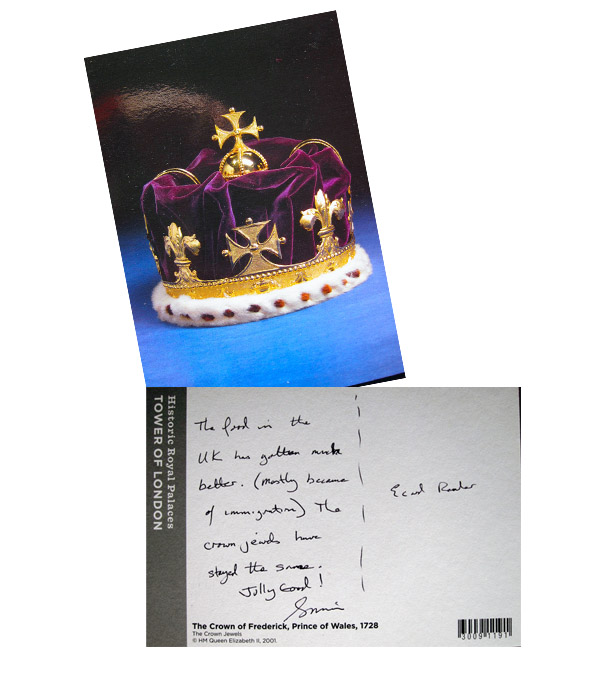 Historic Royal Palaces
TOWER OF LONDON
The food in the
UK has gotten much
better. (mostly because
of immigration) The
crown jewels have
stayed the same.
Jolly Good!
Ecard Reader
The Crown of Frederick, Prince of Wales, 1728
The Crown Jewels
© HM Queen Elizabeth II, 2001.
30091191